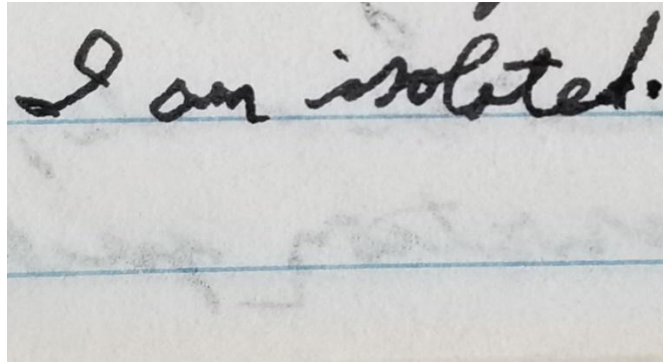 I am isolated.